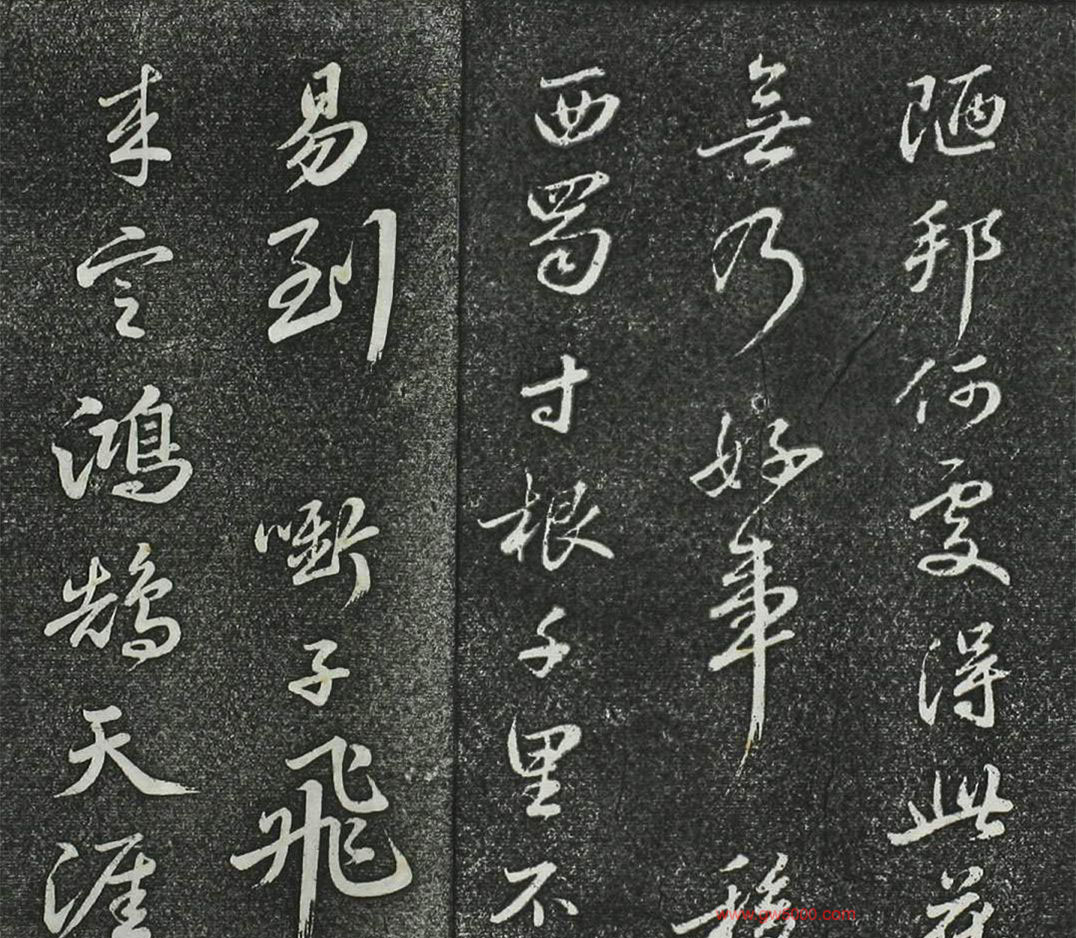 陋邦何處得此花
無乃好事移
西蜀寸根千里不
易到啣子飛
来定鴻鵠天涯
www.gw5000.com